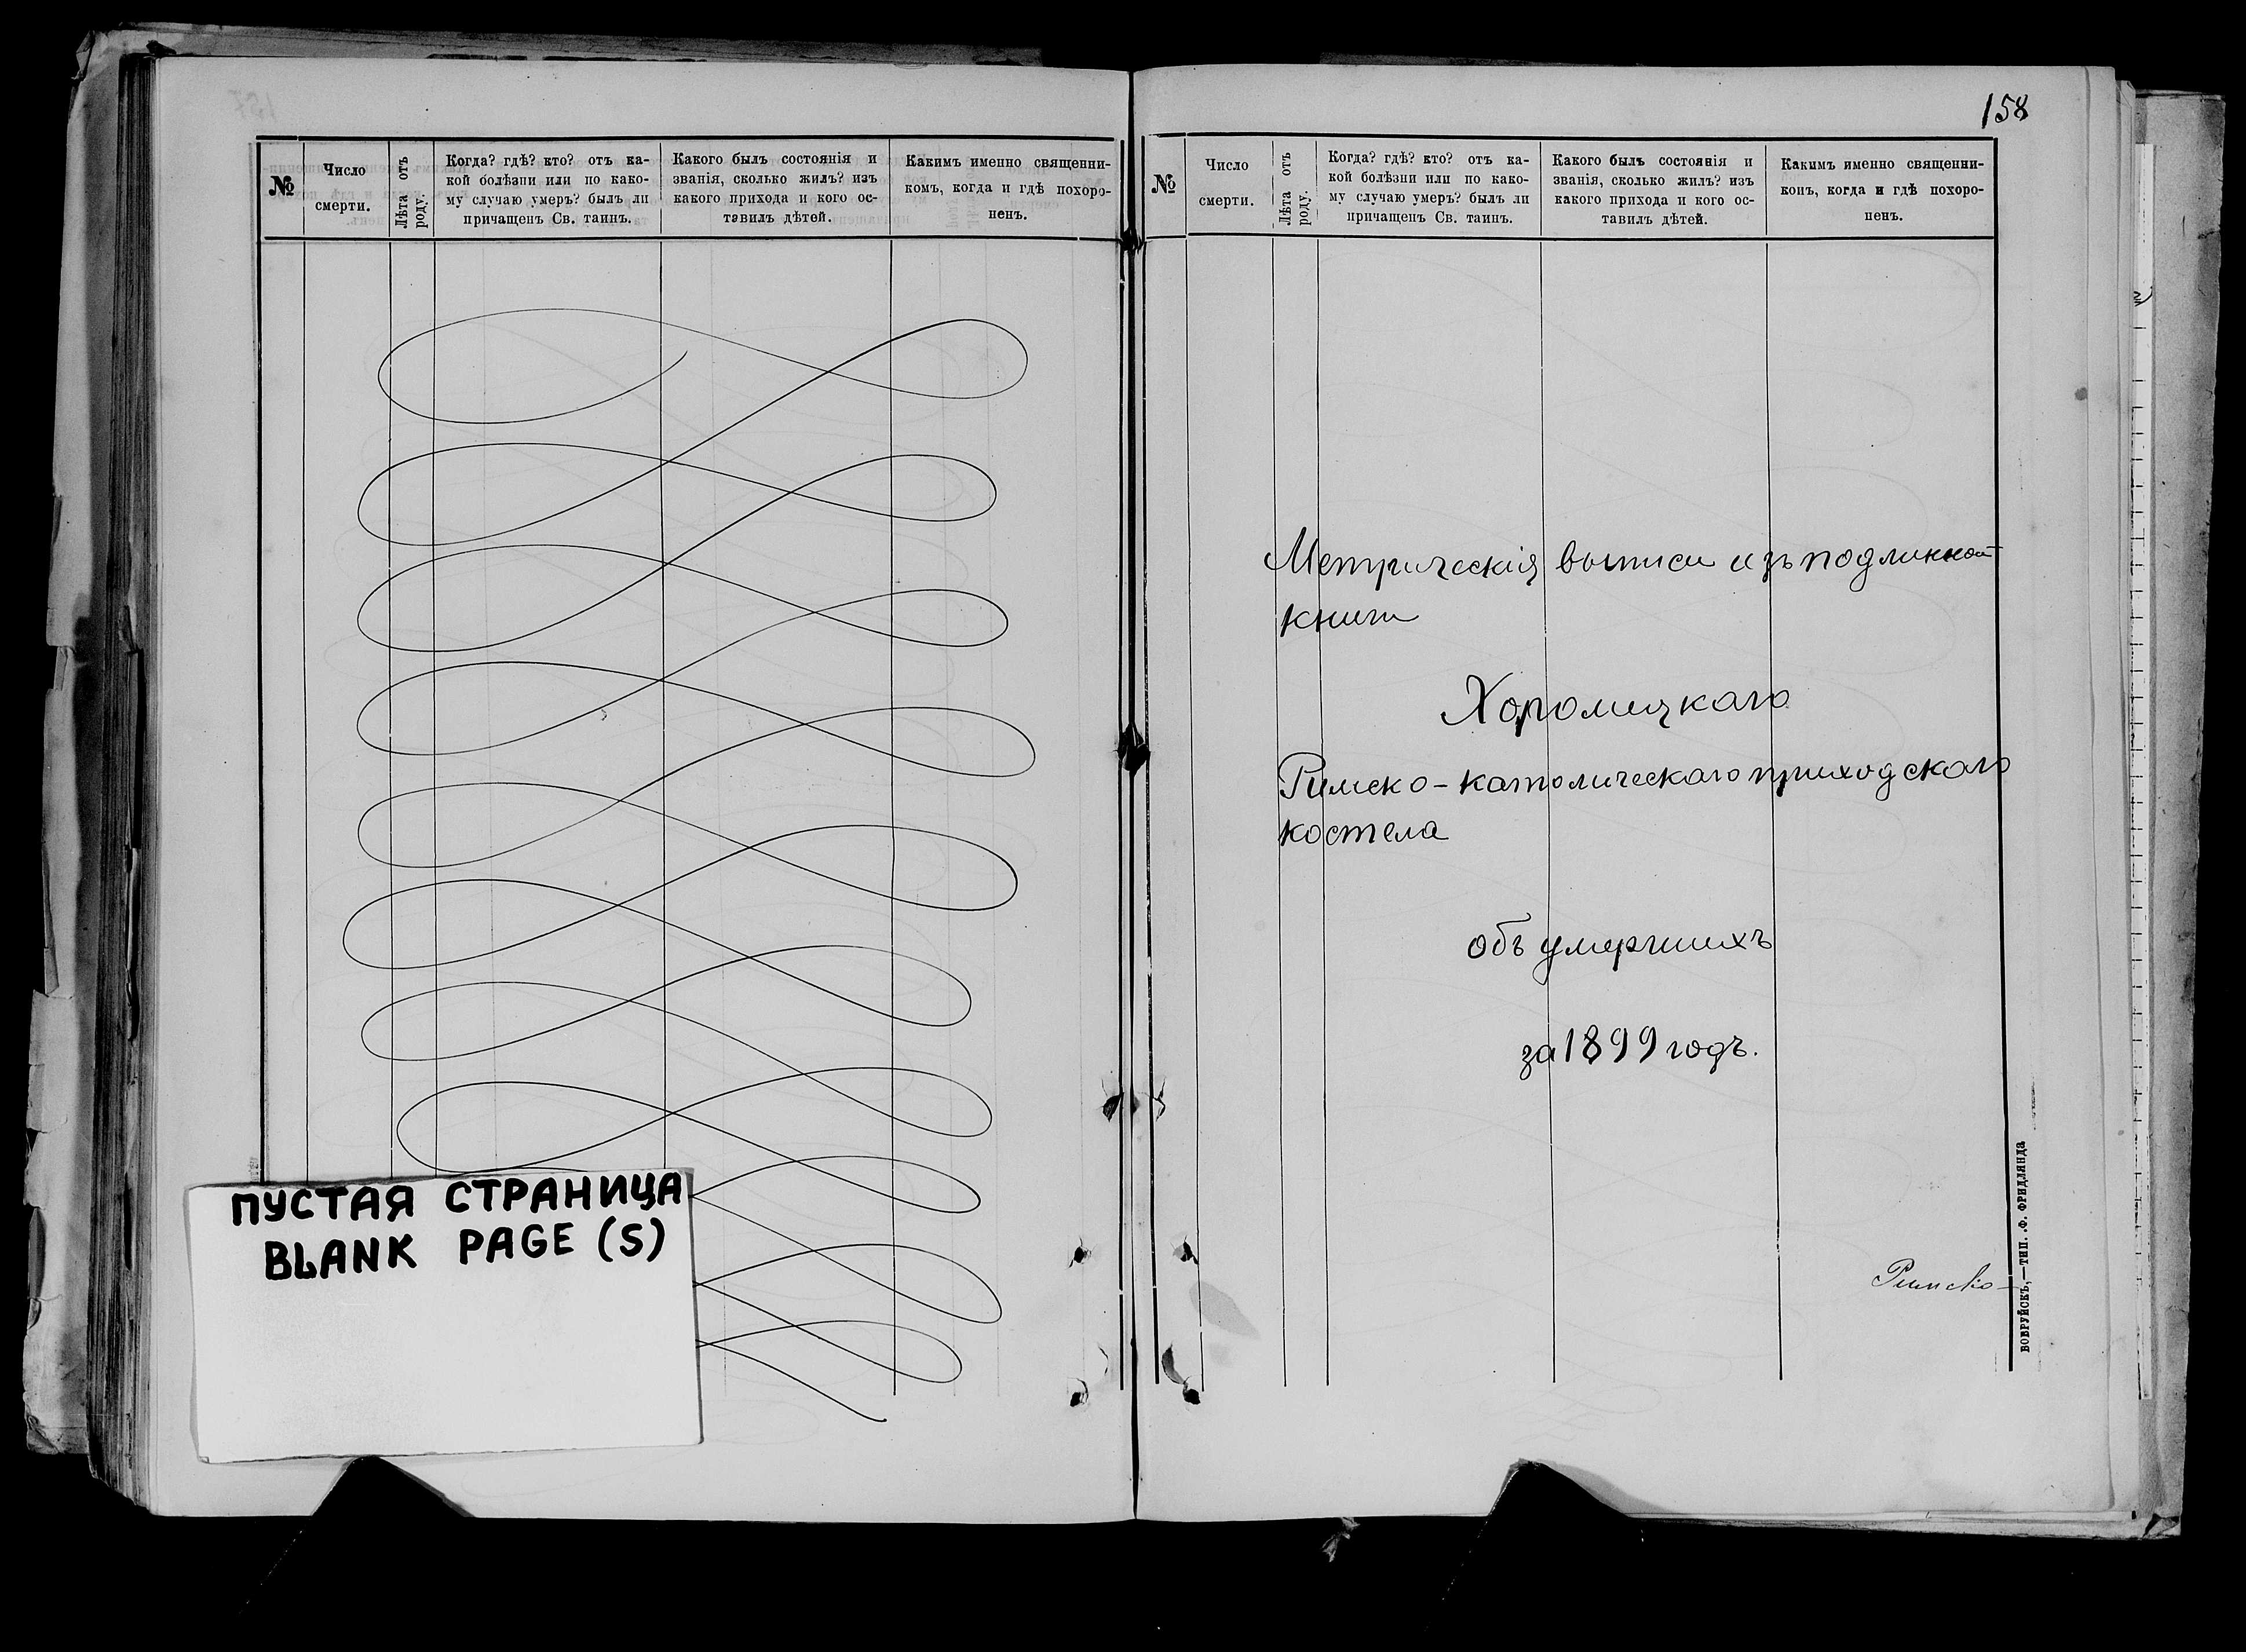 №
Число
смерти.
Лѣта отъ
роду.
Когда? гдѣ? кто? отъ ка-
кой болѣзни или по како-
му случаю умеръ? былъ ли
причащенъ Св. таинъ.
Какого былъ состоянія и
званія, сколько жилъ? изъ
какого прихода и кого ос-
тавилъ дѣтей.
Какимъ именно священни-
комъ, когда и гдѣ похоро-
ненъ.
ПУСТАЯ СТРАНИЦА
BLANK PAGE (S)
158
№
Число
смерти.
Лѣта отъ
роду.
Когда? гдѣ? кто? отъ ка-
кой болѣзни или по како-
му случаю умеръ? былъ ли
причащенъ Св. таинъ.
Какого былъ состоянія и
званія, сколько жилъ? изъ
какого прихода и кого ос-
тавилъ дѣтей.
Какимъ именно священни-
комъ, когда и гдѣ похоро-
ненъ.
Метрическія выписи изъ подлинной
книги
Хоромицкаго
Римско-католическаго приходскаго
костела
объ умершихъ
за 1899 годъ.
Римско-
БОБРУЙСКЪ,—ТИП. Ф. ФРИДЛЯНДА